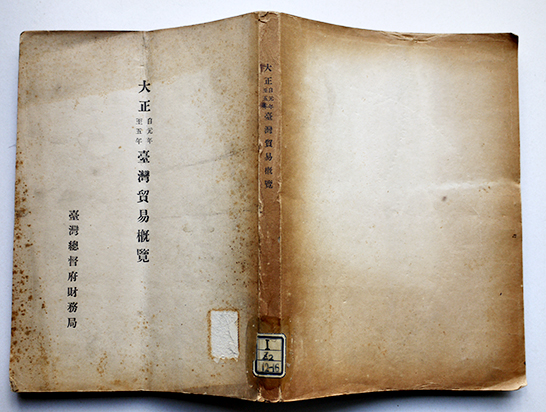 大正自元年至五年臺灣貿易概覽
臺灣總督府財務局
大正自元年至五年臺灣貿易概覽
I
22
12-16